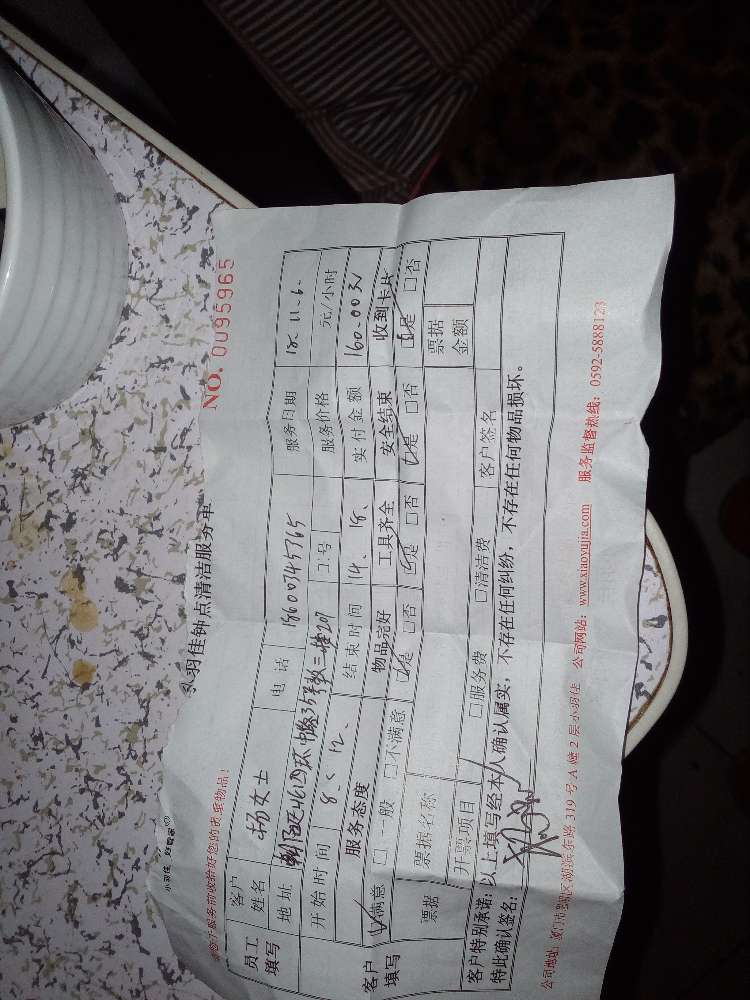 小羽佳 好管家
小羽佳钟点清洁服务单
NO. 0095965
请您于服务前收拾好您的贵重物品！
员工填写 客户姓名 杨女士 电话 服务日期 18.11.6.
地址 工号 服务价格 元/小时
开始时间 8 12、 结束时间 14、18、 实付金额 160.00元
客户填写 服务态度 物品完好 工具齐全 安全结束 收到卡片
☑满意 □一般 □不满意 ☑是 □否 ☑是 □否 ☑是 □否 ☑是 □否
票据 票据名称 票据金额
开票项目 □服务费 □清洁费 客户签名
客户特别承诺：以上填写经本人确认属实，不存在任何纠纷，不存在任何物品损坏。
特此确认签名：
公司地址：厦门市思明区湖滨东路 319 号 A 幢 2 层小羽佳 公司网站：www.xiaoyujia.com 服务监督热线：0592-5888123